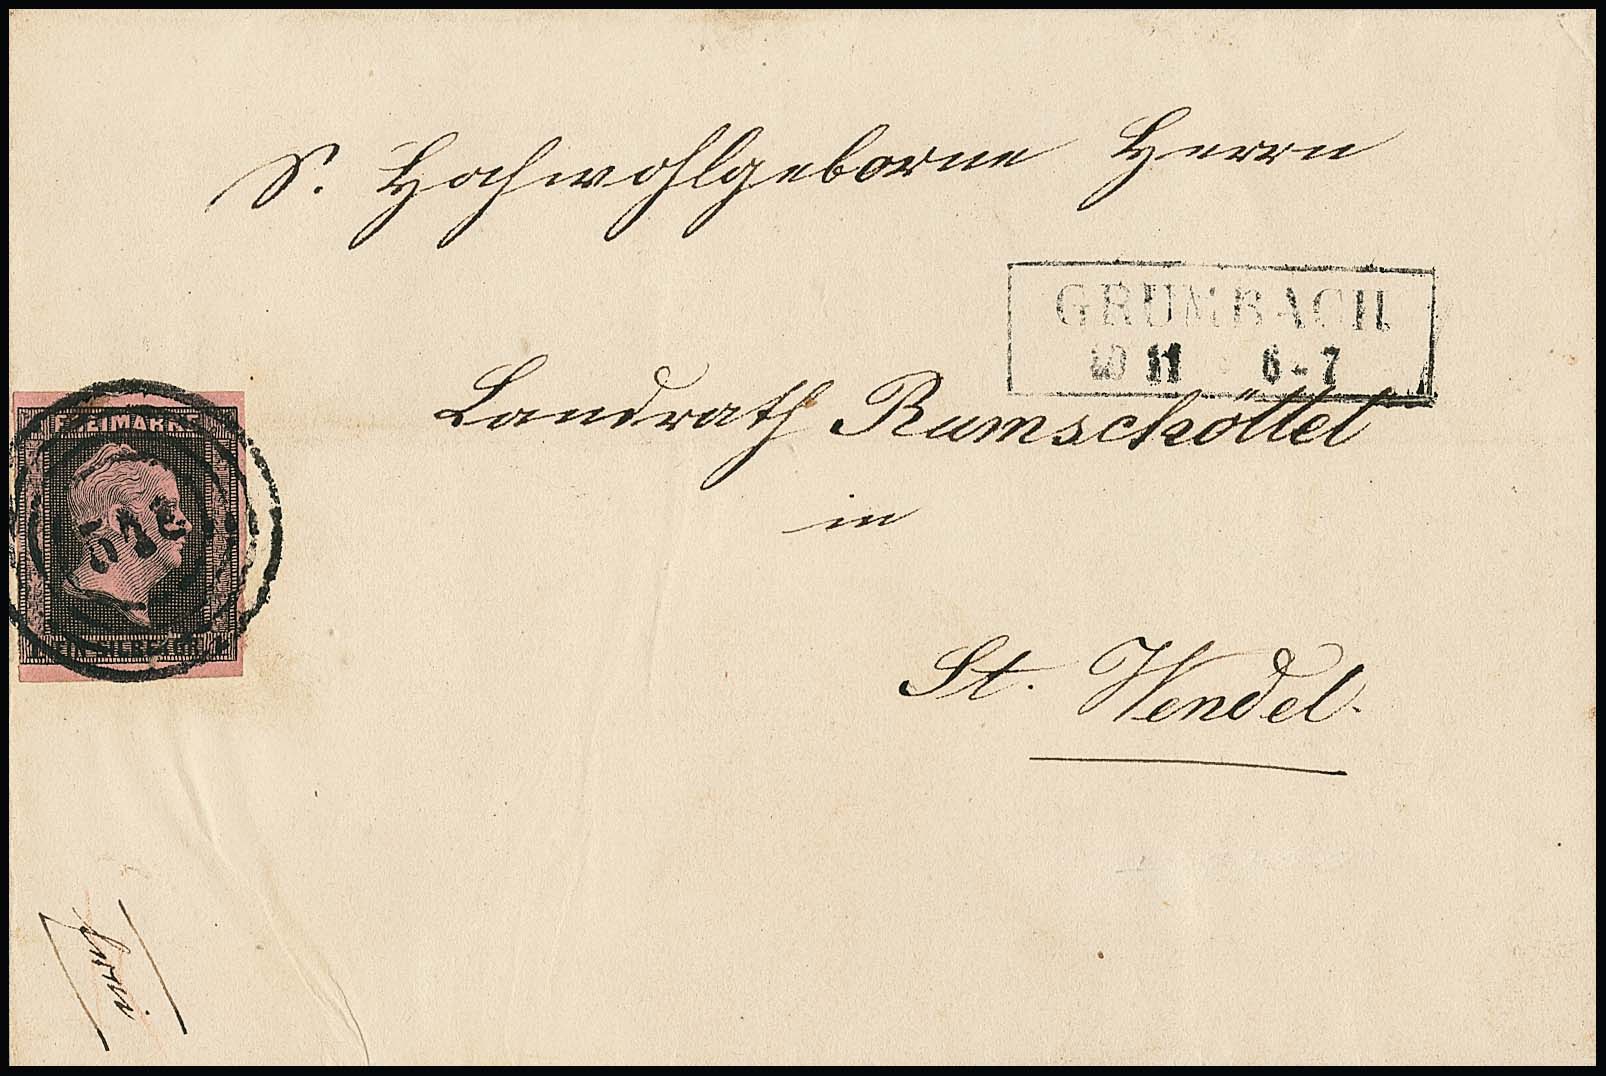 S. Hochwohlgeborne Herrn
GRUMBACH
11 6-7
Landrath Rumschöttel
in
St. Wendel.
FREIMARKE
EIN SILBERGR.
frei